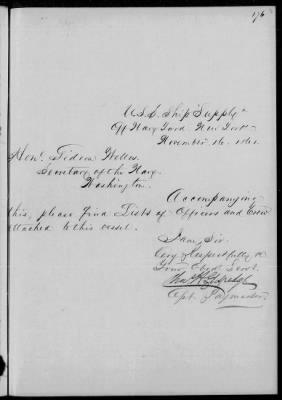 176
U.S. Ship Supply
Off Navy Yard New York
November 16. 1861.
Hon. Gideon Welles.
Secretary of the Navy.
Washington.
Accompanying
this, please find Lists of Officers and Crew
attached to this vessel.
I am, Sir,
Very Respectfully
Your Obdt Servt.
Paymaster.